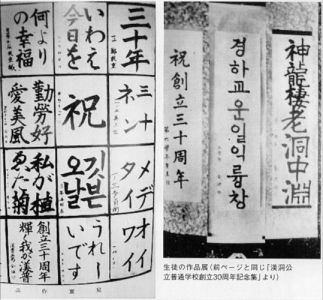 三十年
三十
ネン
メデ
タイ
オイ
ワイ
いわえ
今日を
祝
깃븐
오날
うれし
いです
何より
の幸福
勤労好
愛美風
私が植
ゑた菊
創立三十周年
輝く我が漢普
品作童児
神龍棲老洞中淵
경하교운일익륭창
祝創立三十周年
生徒の作品展(前ページと同じ『漢洞公
立普通学校創立30周年記念集』より)